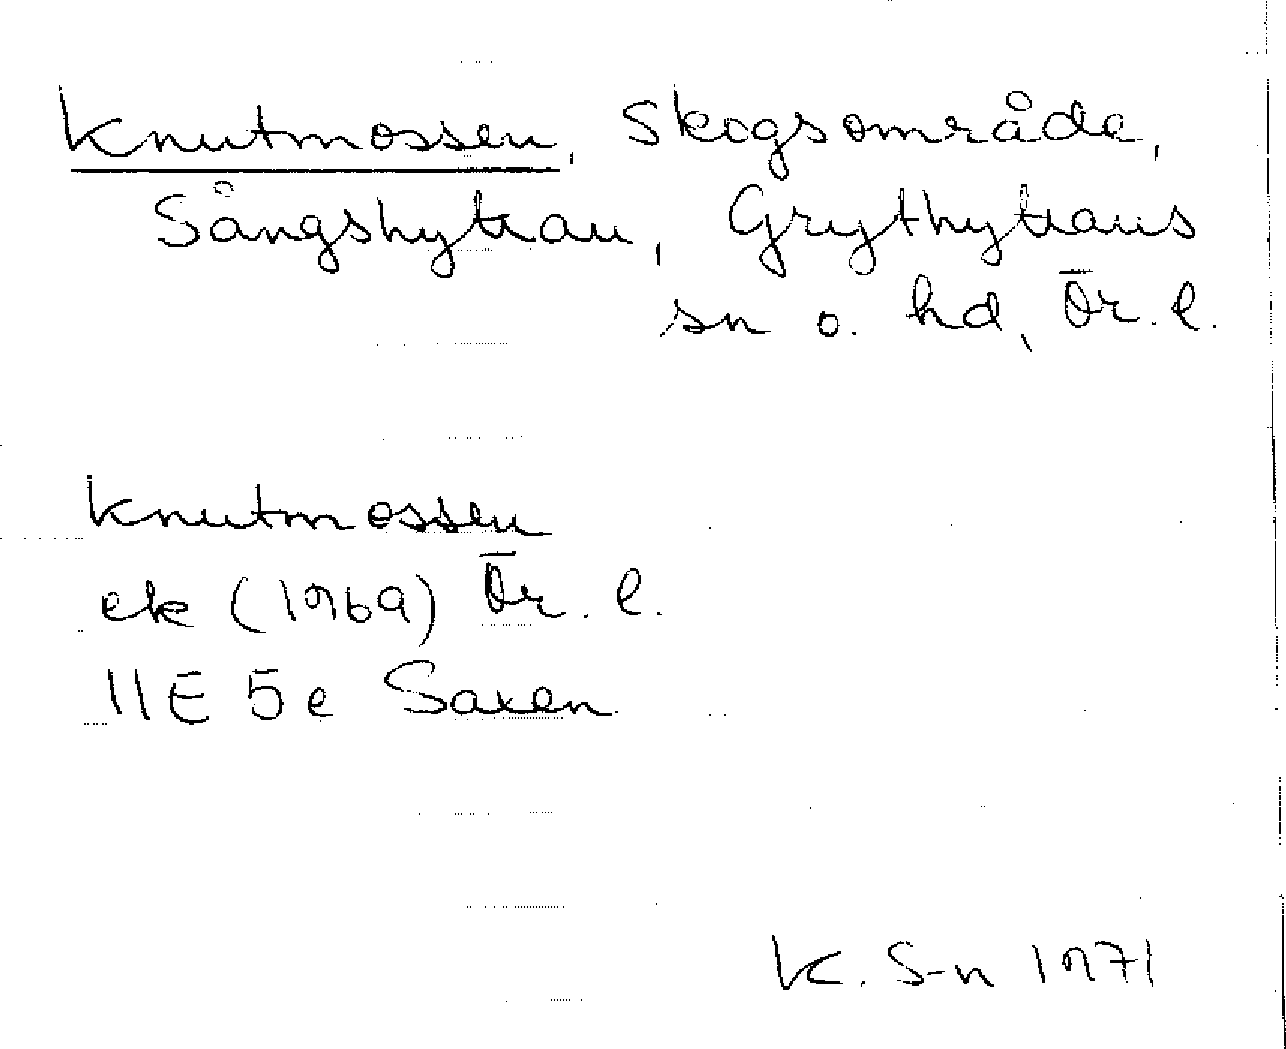 Knutmossen, Skogsområde,
Sångshyttan, Grythyttans
sn o. hd, Ör. l.
Knutmossen
ek (1969) Ör. l.
11E 5e Saxen
K. S-n 1971